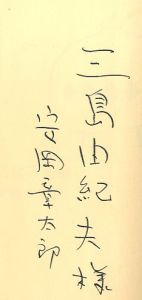 三島由紀夫様
安岡章太郎